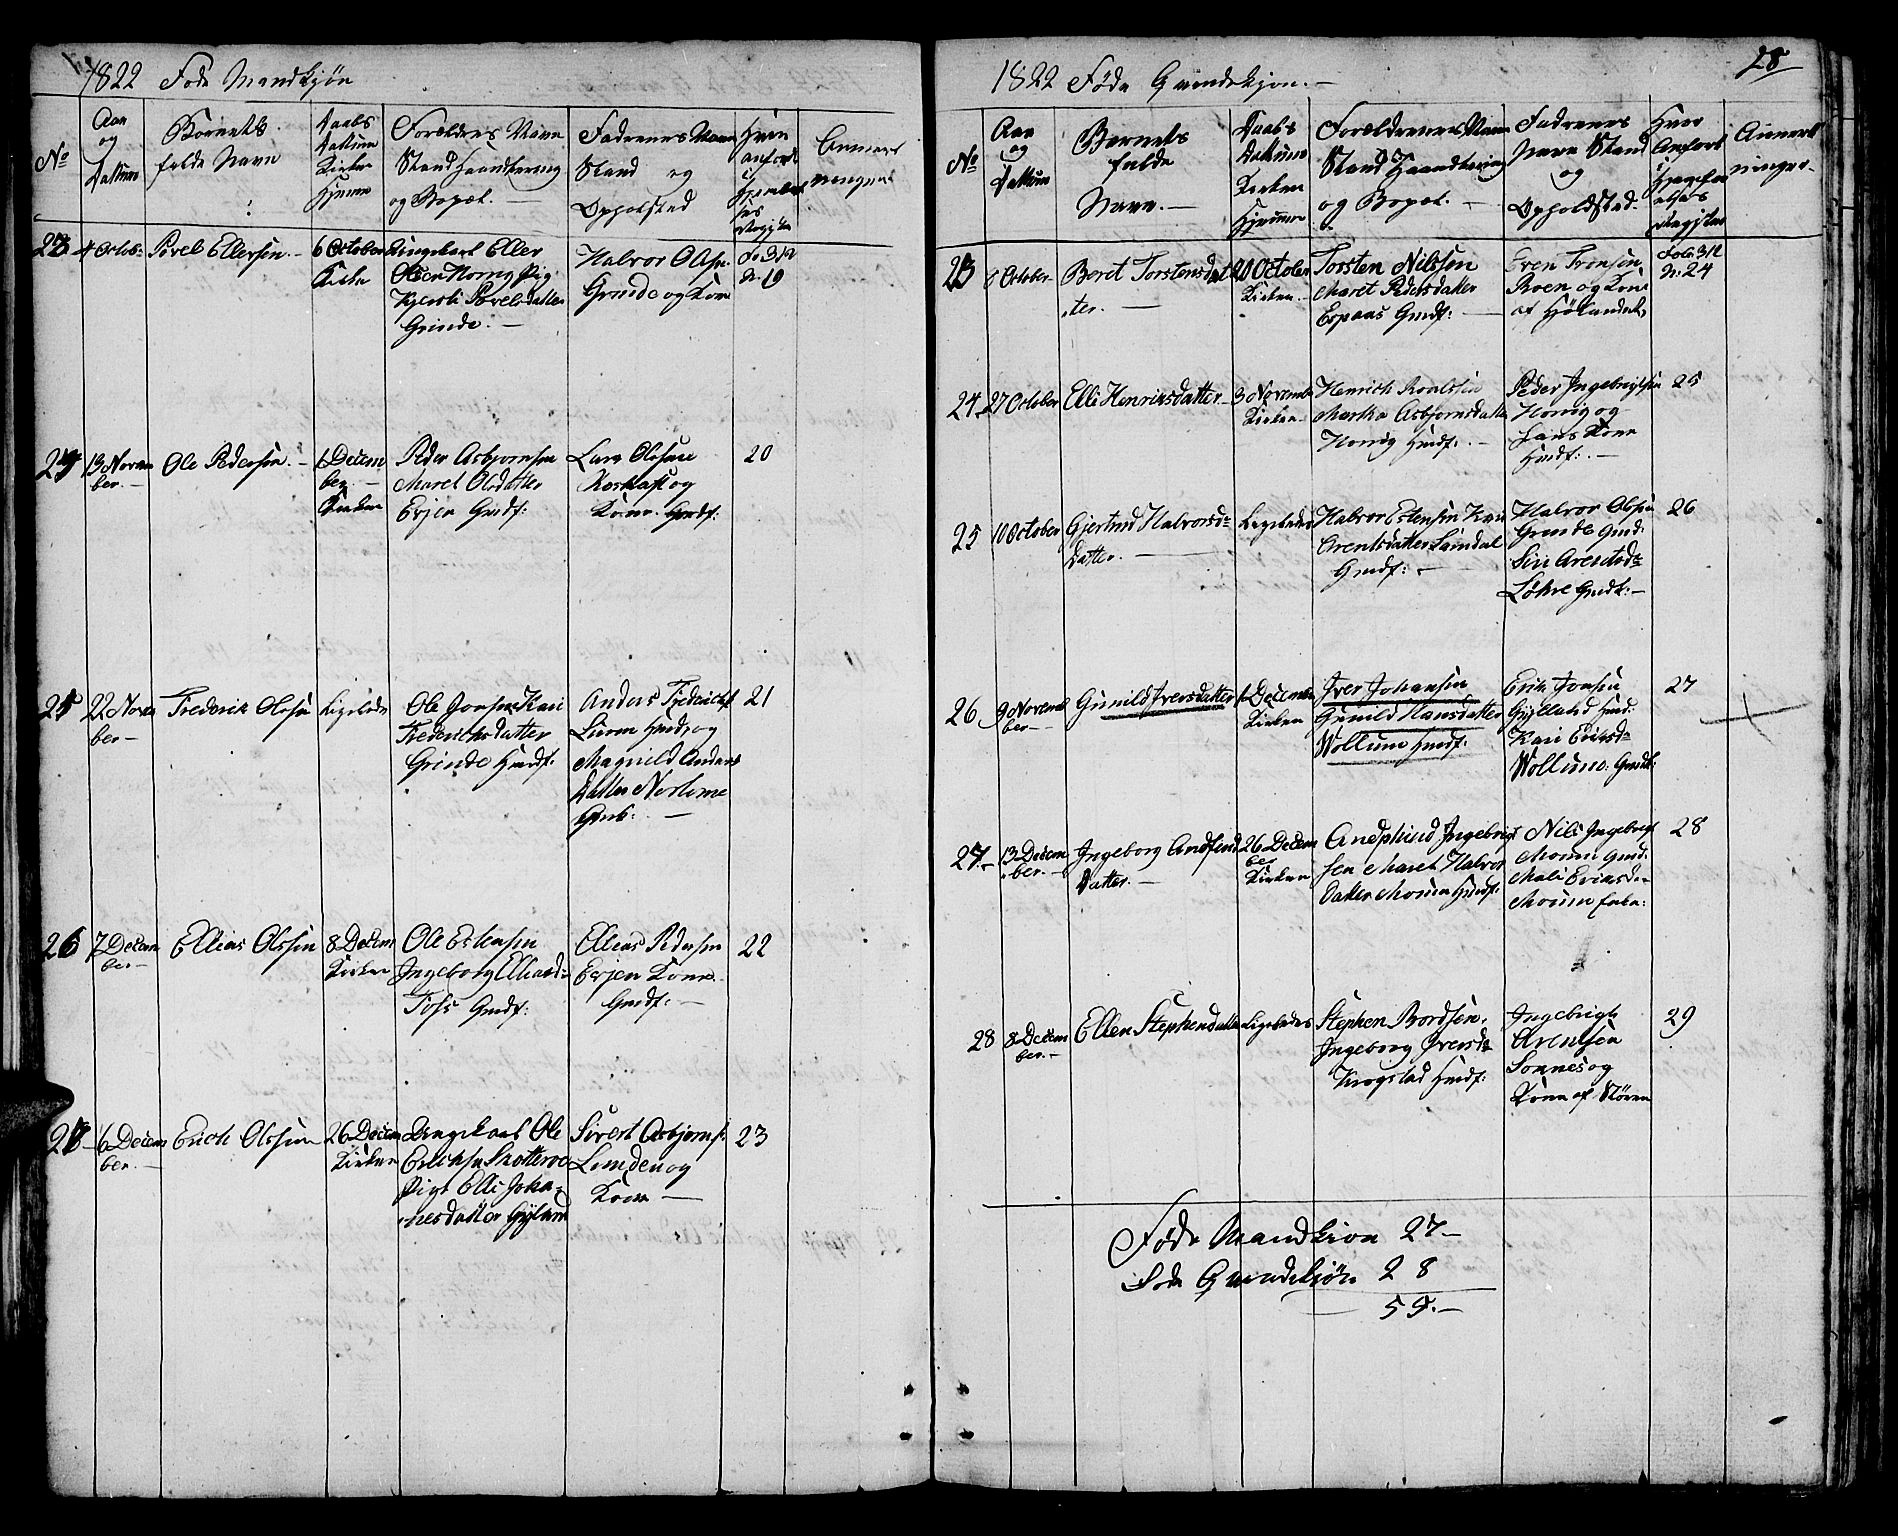 1822 Föde Mandkjön
No
Aar
og
Dattum
Barnets
fulde Navn
Daabs
Dattum
Kirken
Hjemme
Forældrenes Navn
Stand Haandtering
og Bopæl. —
Faderenes Navn
Stand og
Opholsted
Hvor
anført
Anmærk
ninger
23 4 Octobr. Povel Ellersen. —
6 October
Kirken
Ungekarl Eller
Olsen Horrig Pig
Povelsdatter
Grinde. —
Halvor Olsen
Grinde og Kone
Fo. 312
N. 19
24 13 Novem
ber. —
Ole Pedersen. —
1 Decem
ber. —
Kirken
Peder Asbjørnsen
Maret Olsdatter
Evjen Gmdf:
Lars Olsen
Kone. Gmdf:
20
25 22 Novem
ber —
Frederik Olssen
Ligeledes
Ole Jonsen Kari
Fredrichsdatter
Grinde Hmdf:
Anders Fredrichs
og
Magnild Anders
Datter Norløme
21
26 7 Decem
ber —
Ellias Olssen
8 Decem
Kirken
Ole Estensen
Ingeborg Elliasd=
Gmdf:
Ellias Pedersen
Evjen Kone
Gmdf: —
22
27 6 Decem
ber. —
Erich Olssen
26 Decem
Kirken
Ungekarl Ole
Erichsen
Pige Elli Joha=
nnesdatter Gylland
Sivert Asbjørns:
Lunden og
Kone —
23
28
1822 Föde Qvindekjön. —
No
Aar
og
Dattum
Barnets
fulde
Navn. —
Daabs
Dattum
Kirken
Hjemme
Forældrenes Navn
Stand Haandtering
og Bopæl. —
Fadrenes
Navn Stand
og
Opholdsted.
Hvor
Anført
Anmerk
ninger.
23 6 October Beret Torstensdat
ter. —
20 October
Kirken —
Torsten Nilssen
Maret Pedersdatter
Espaas Gmdf: —
Even Tronsen
Roen og Kone
af Hölandet,
Folio 312
N. 24
24 27 October Elli Henriksdatter
3 Novemb
Kirken —
Henrich Roalssen
Martha Asbjørnsdatter
Horrig Hmdf: —
Peder Ingebrigtsen
Horrig og
hans Kone
Hmdf: —
25
25 10 October Gjertrud Halvorsd=
Datter. —
Ligeledes
Halvor Estensen Kari
Arentsdatter Samdal
Gmdf: —
Halvor Olsen
Grinde Gmd:
Siri Arentsd=
Löhre Gmdf: —
26
26 9 Novem
ber —
Gunild Iversdatter
1 Decem
Kirken
Iver Johansen
Gunild Hansdatter
Wollum Hmdf:
Erik Jonsen
Gylland Hmd:
Kari Eriksd=
Wollum: Gmdf:
27
27 13 Decem
ber. —
Ingeborg Andfind
Datter. —
26 Decem
ber
Kirken
Andfind Ingebrigt
sen Maret Halvor
Datter Moum Hmdf:
Nils Ingebrigt
Moum Gmd:
Mali Eriksd=
Moum
28
28 8 Decem
ber. —
Ellen Stephendatter
Ligeledes
Stephen Bordsen,
Ingeborg Iversd=
Krogstad Hmdf:
Ingebrigt
Arentsen
Sonnes og
Kone af Stören
29
Föde Mandkiön 27 —
Föde Qvindekjön 28
55. —